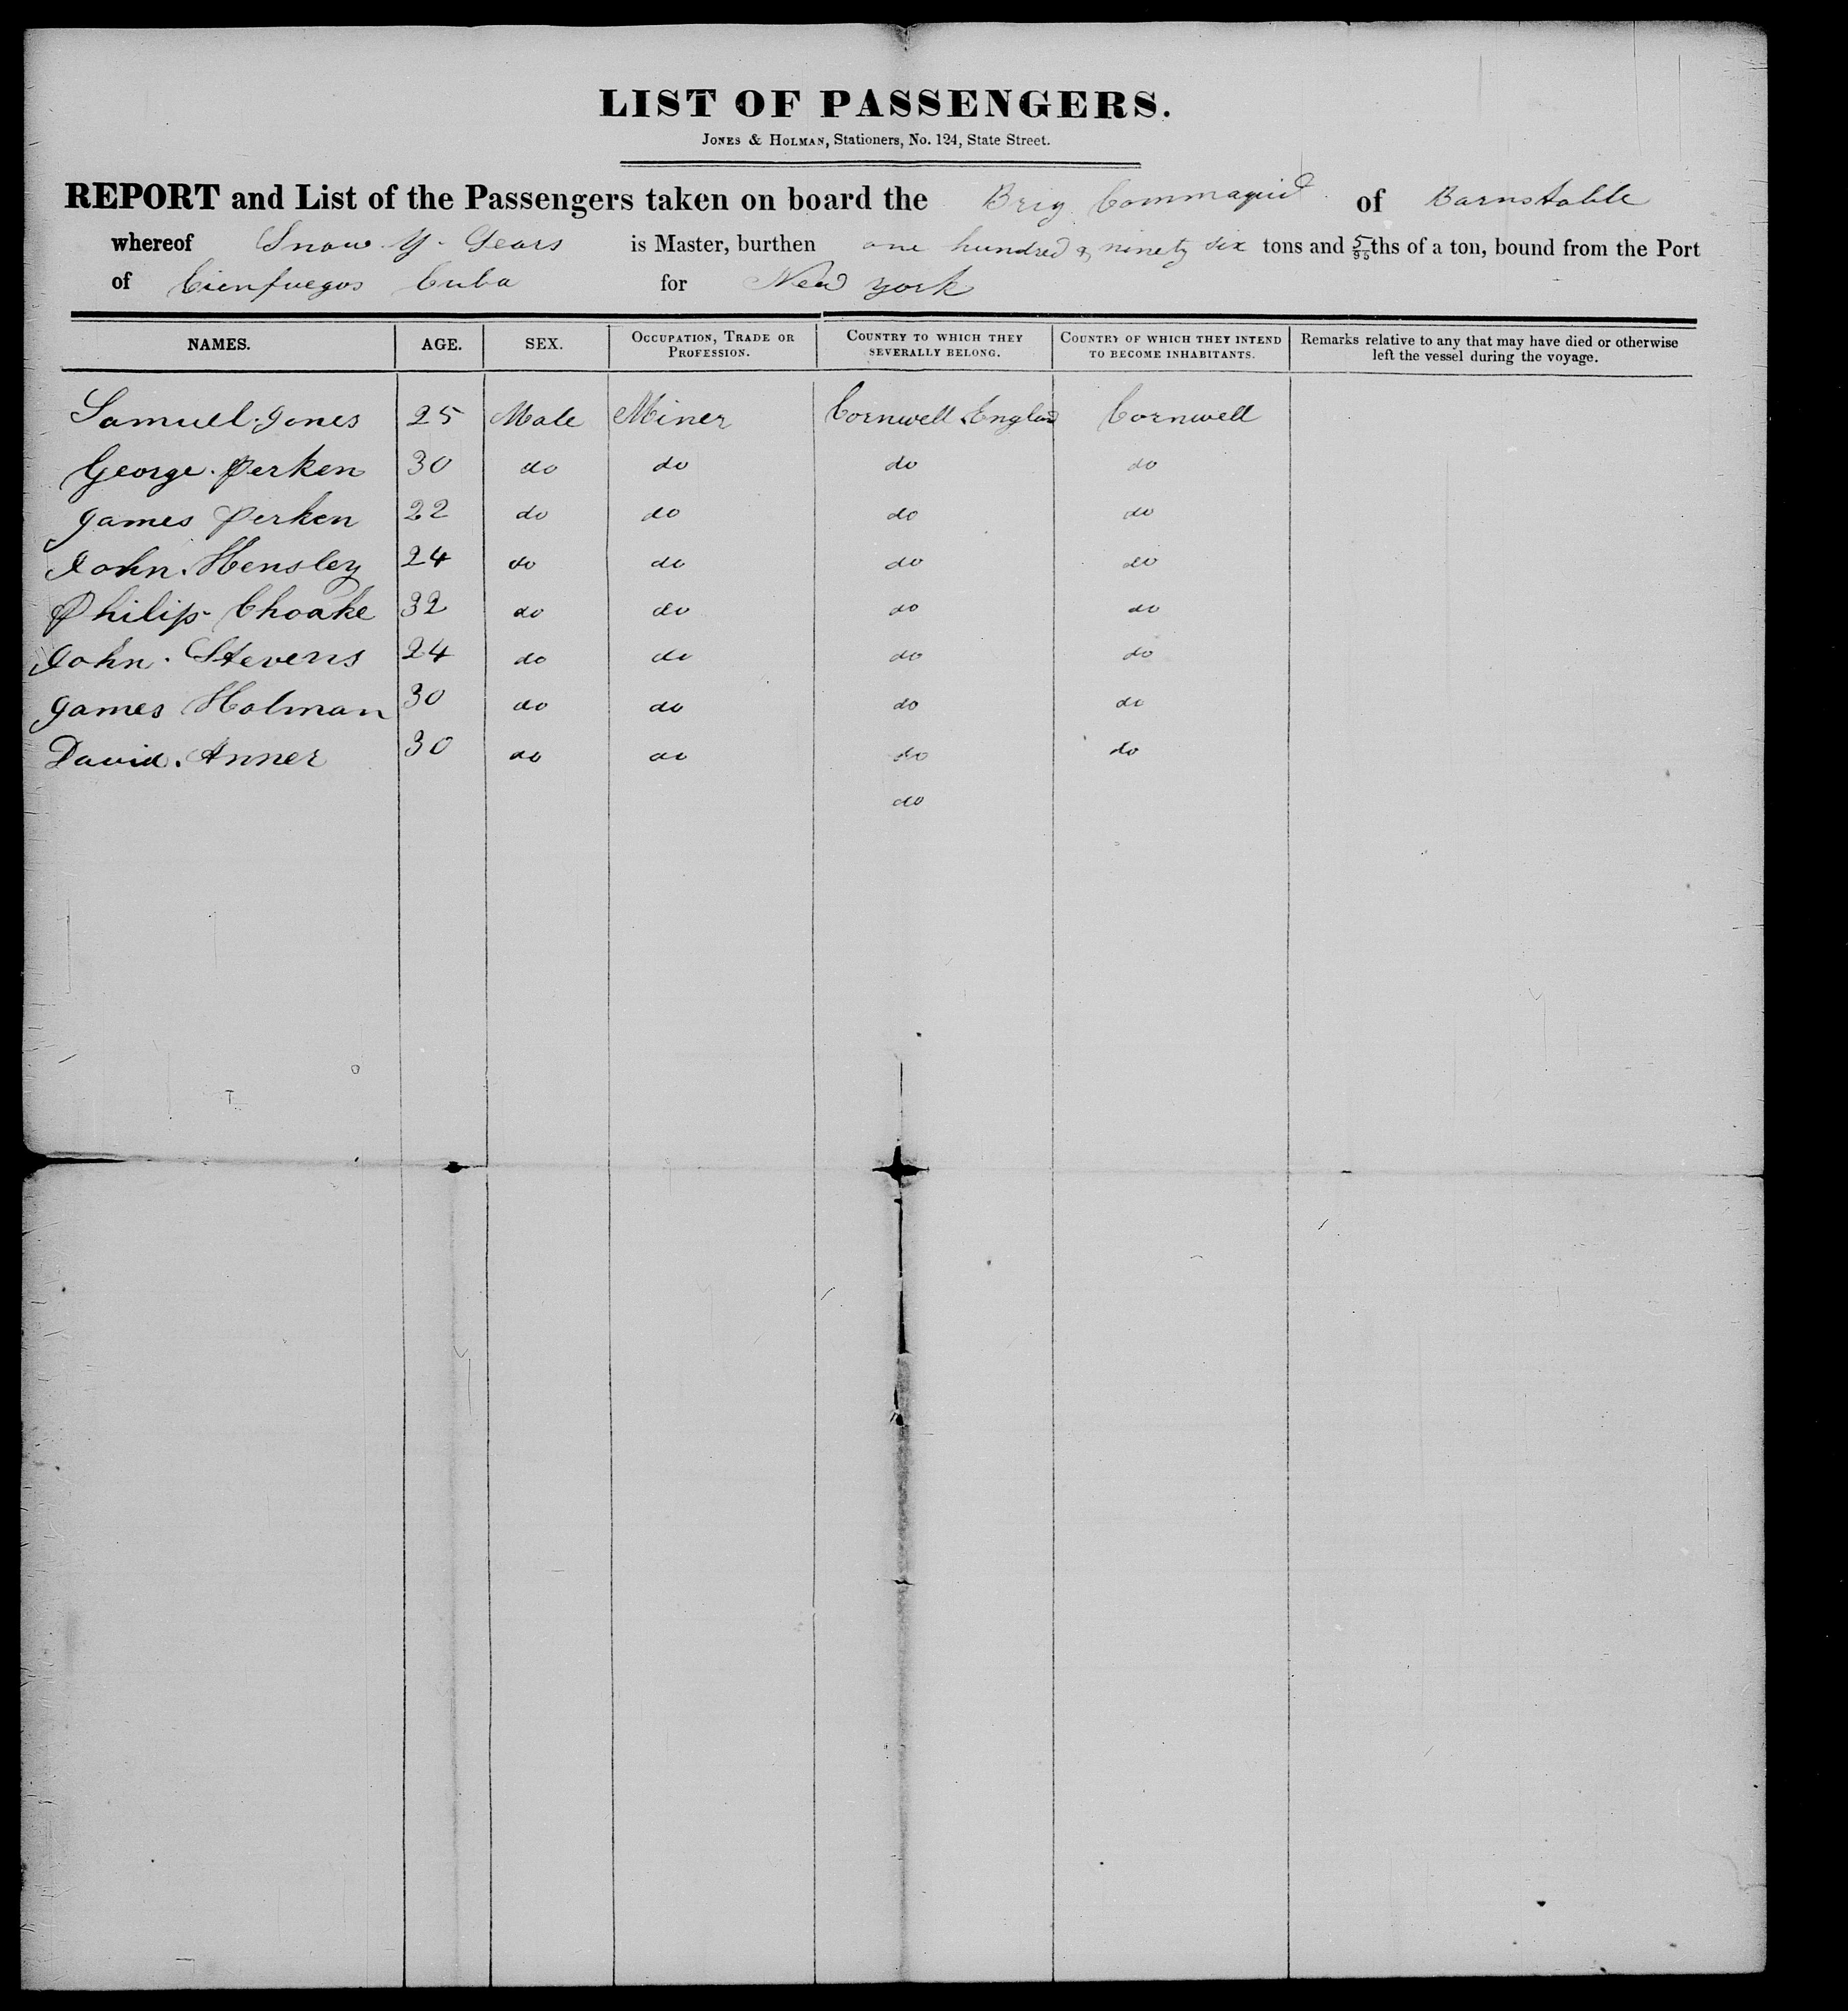 LIST OF PASSENGERS.
JONES & HOLMAN, Stationers, No. 124, State Street.
REPORT and List of the Passengers taken on board the Brig Commaquid of Barnstable
whereof Snow Y. Sears is Master, burthen one hundred & ninety six tons and 5/95ths of a ton, bound from the Port
of Cienfuegos Cuba for New york
NAMES. AGE. SEX. OCCUPATION, TRADE OR PROFESSION. COUNTRY TO WHICH THEY SEVERALLY BELONG. COUNTRY OF WHICH THEY INTEND TO BECOME INHABITANTS. Remarks relative to any that may have died or otherwise left the vessel during the voyage.
Samuel Jones 25 Male Miner Cornwell England Cornwell
George Perken 30 do do do do
James Perken 22 do do do do
John Hensley 24 do do do do
Philip Choake 32 do do do do
John Stevens 24 do do do do
James Holman 30 do do do do
David Anner 30 do do do do
do